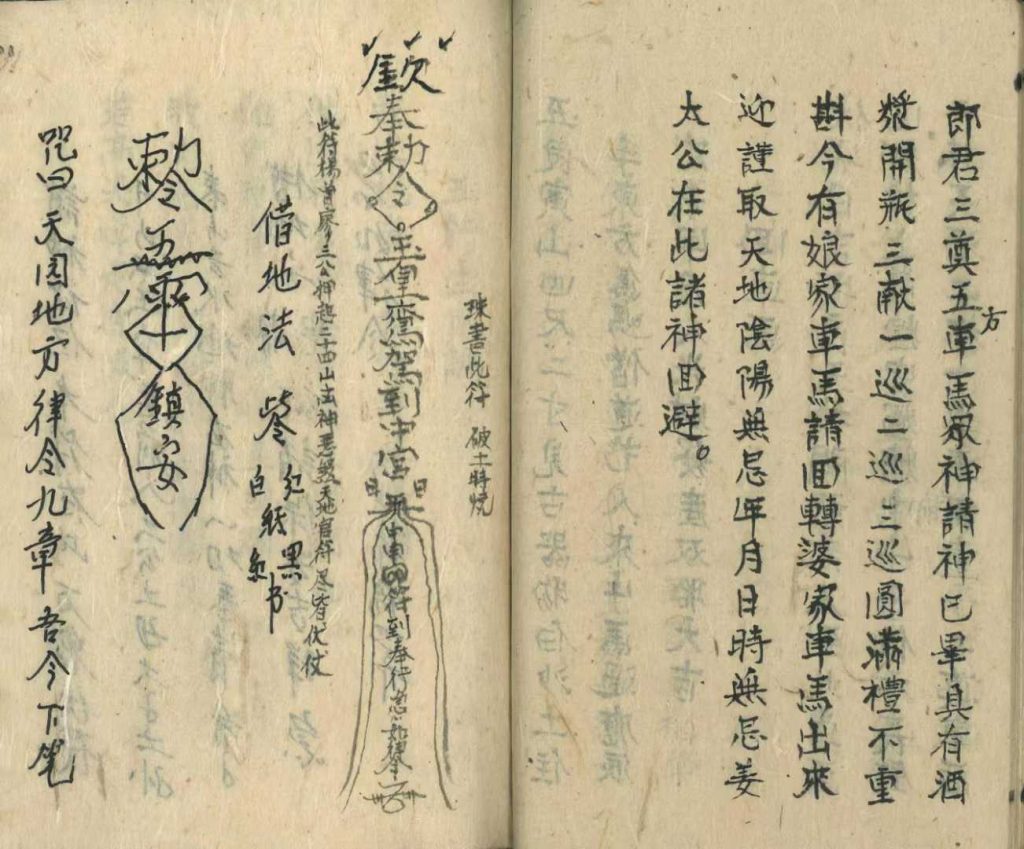 郎君三奠五方車馬眾神請神已畢具有酒
漿開瓶三献一巡二巡三巡圓滿禮不重
斟今有娘家車馬請回轉婆家車馬出來
迎謹取天地陰陽無忌年月日時無忌姜
太公在此諸神回避。
硃書此符 破土時燒
奉勅令 到中宮 符到奉行
此符楊曾廖三公押起二十四山凶神惡煞天地官符尽皆伏
借地法
紅紙黑书
白紙紅
勅令 鎮安
咒曰天圆地方律令九章吾今下笔